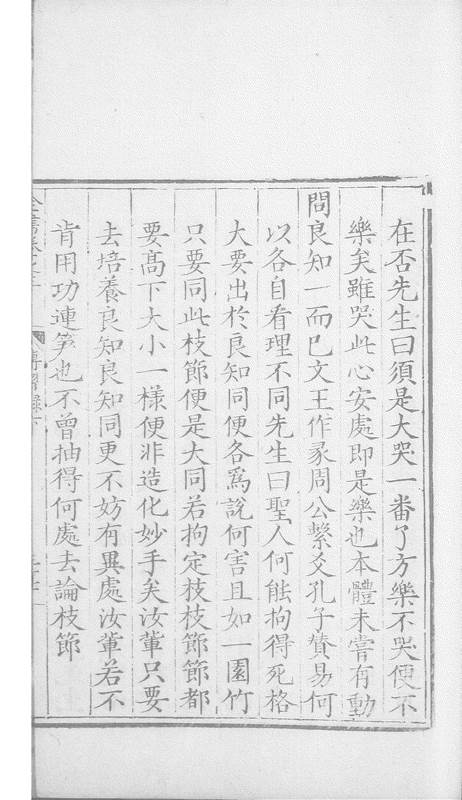 在否先生曰須是大哭一番了方樂不哭便不
樂矣雖哭此心安處即是樂也本體未嘗有動
問良知一而已文王作彖周公繫爻孔子贊易何
以各自看理不同先生曰聖人何能拘得死格
大要出於良知同便各爲說何害且如一園竹
只要同此枝節便是大同若拘定枝枝節節都
要高下大小一樣便非造化妙手矣汝輩只要
去培養良知良知同更不妨有異處汝輩若不
肯用功連笋也不曾抽得何處去論枝節
傳習錄下